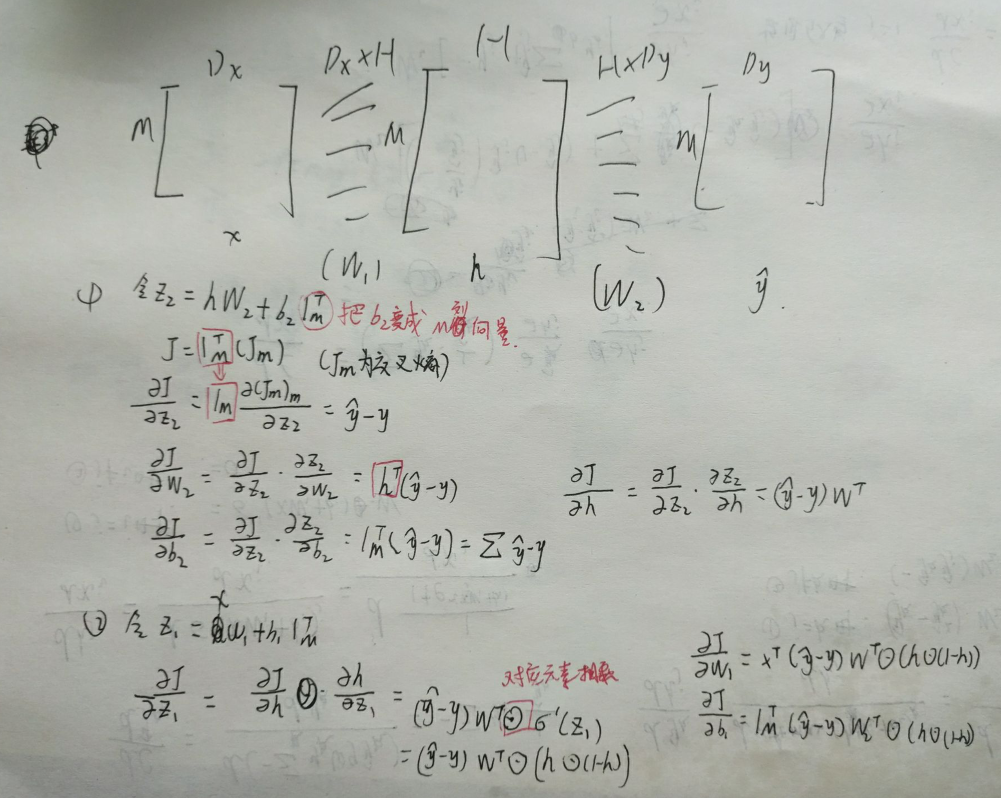 Dx Dx×H H H×Dy Dy
m M m
x (W₁) h (W₂) ŷ.
① 令 z₂ = hW₂ + b₂ 1ₘᵀ 把 b₂ 变成 m列向量.
J = 1ₘᵀ (Jₘ) (Jₘ 为交叉熵)
∂J/∂z₂ = 1ₘ ∂(Jₘ)ₘ/∂z₂ = ŷ-y
∂J/∂W₂ = ∂J/∂z₂ · ∂z₂/∂W₂ = hᵀ(ŷ-y) ∂J/∂h = ∂J/∂z₂ · ∂z₂/∂h = (ŷ-y) Wᵀ
∂J/∂b₂ = ∂J/∂z₂ · ∂z₂/∂b₂ = 1ₘᵀ(ŷ-y) = ∑ ŷ-y
② 令 z₁ = xw₁ + b₁ 1ₘᵀ
对应元素相乘
∂J/∂z₁ = ∂J/∂h ⊙· ∂h/∂z₁ = (ŷ-y) Wᵀ ⊙ σ'(z₁)
= (ŷ-y) Wᵀ ⊙ (h ⊙(1-h))
∂J/∂W₁ = xᵀ (ŷ-y) Wᵀ ⊙ (h⊙(1-h))
∂J/∂b₁ = 1ₘᵀ (ŷ-y) W₂ᵀ ⊙ (h⊙(1-h))